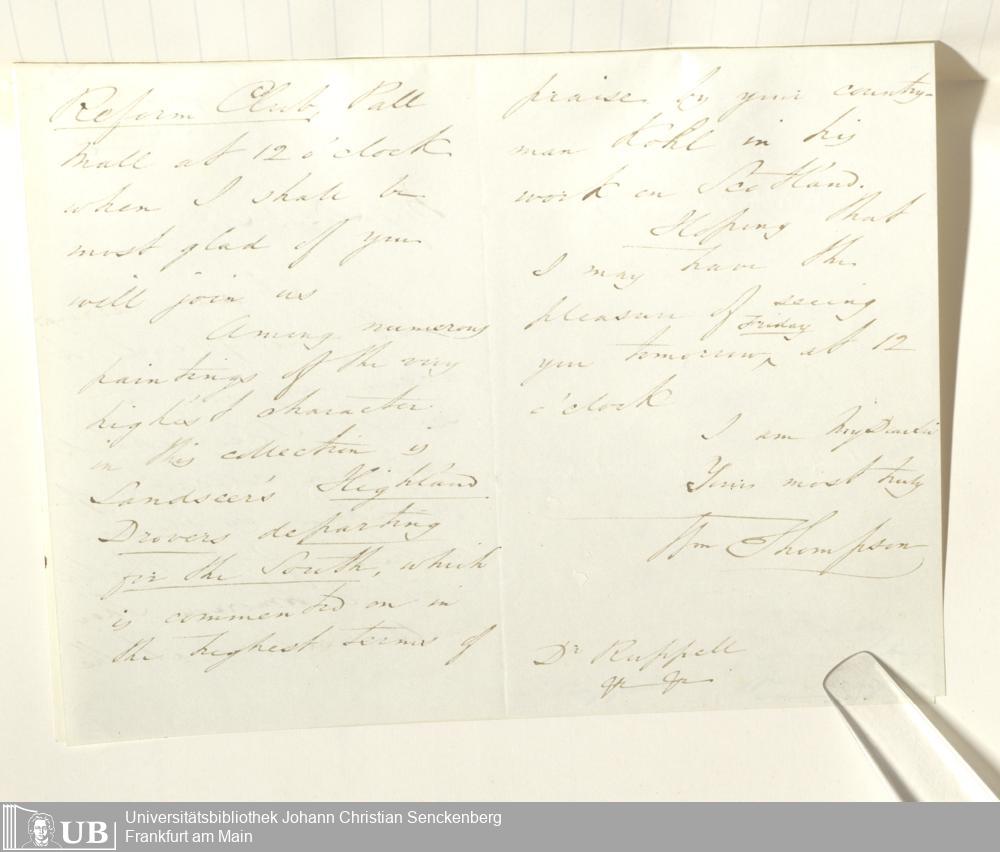 Reform Club, Pall
Mall at 12 o'clock
when I shall be
most glad if you
will join us
Among numerous
paintings of the very
highest character
in this collection is
Landseer's Highland
Drovers departing
for the South, which
is commented on in
the highest terms of
praise by your country-
man Kohl in his
work on Scotland.
Hoping that
I may have the
pleasure of seeing
you tomorrow, Friday at 12
o'clock
I am My Dear Sir
Yours most truly
Wm Thompson
Dr Ruppell
UB
Universitätsbibliothek Johann Christian Senckenberg
Frankfurt am Main